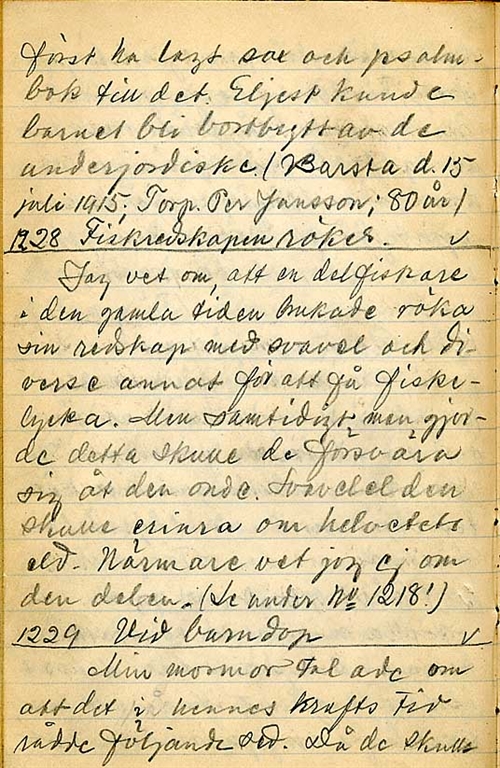 först ha lagt sax och psalm-
bok till det. Eljest kunde
barnet bli bortbytt av de
underjordiske. (Barsta d. 15
juli 1915; Torp. Per Jansson; 80 år)
1228 Fiskredskapen rökes. v
Jag vet om, att en del fiskare
i den gamla tiden brukade röka
sin redskap med svavel och di-
verse annat för att få fiske-
lycka. Men samtidigt men gjor-
de detta skulle de försvära
sig åt den onde. Svavelelden
skulle erinra om helvetets
eld. Närmare vet jag ej om
den delen. (Se under No 1218!)
1229 Vid barndop v
Min mormor talade om
att det i hennes krafts tid
rådde följande sed. Då de skulle